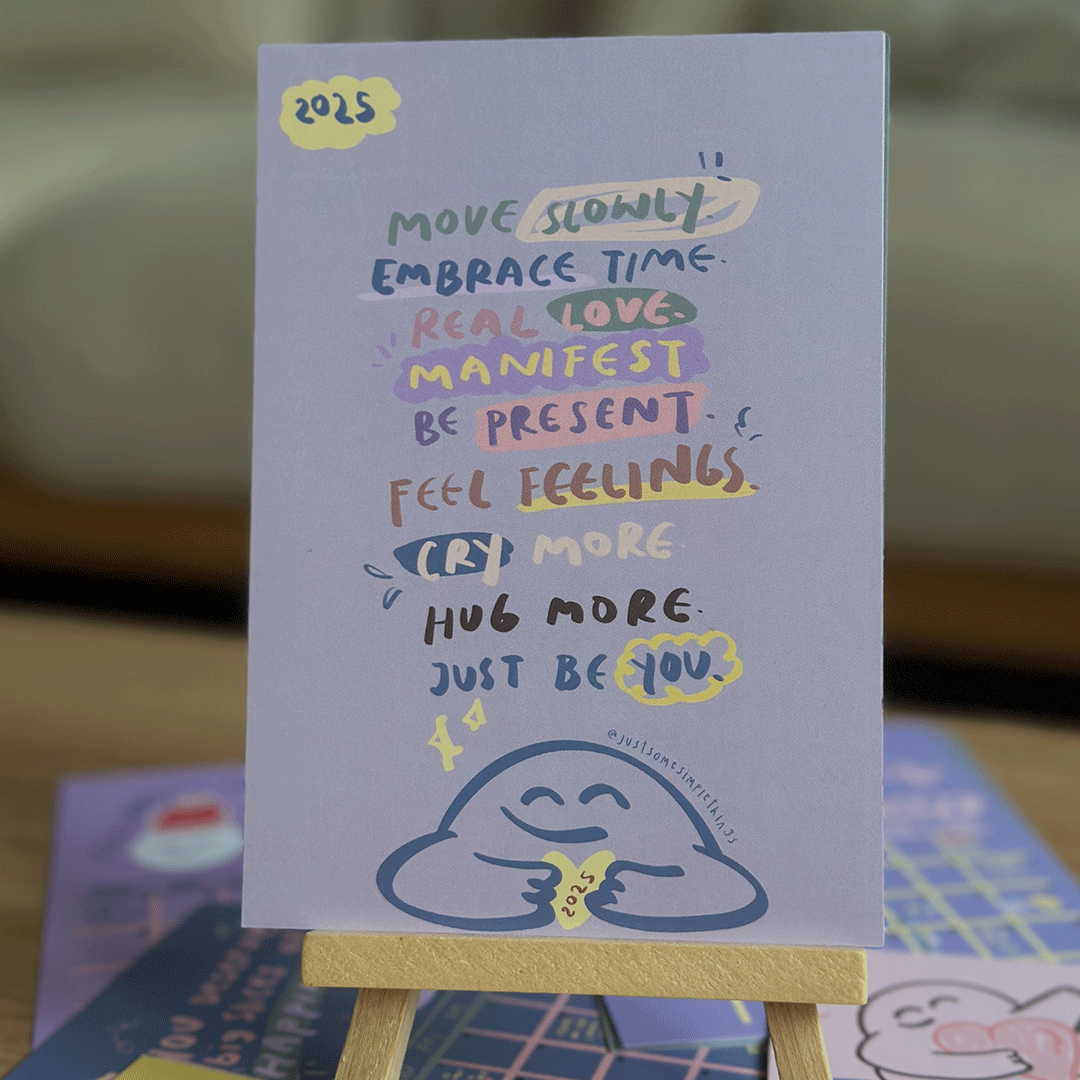 2025
MOVE SLOWLY.
EMBRACE TIME.
REAL LOVE.
MANIFEST
BE PRESENT.
FEEL FEELINGS.
CRY MORE.
HUG MORE.
JUST BE YOU.
@JUSTSOMESIMPLETHINGS
2025
YOU